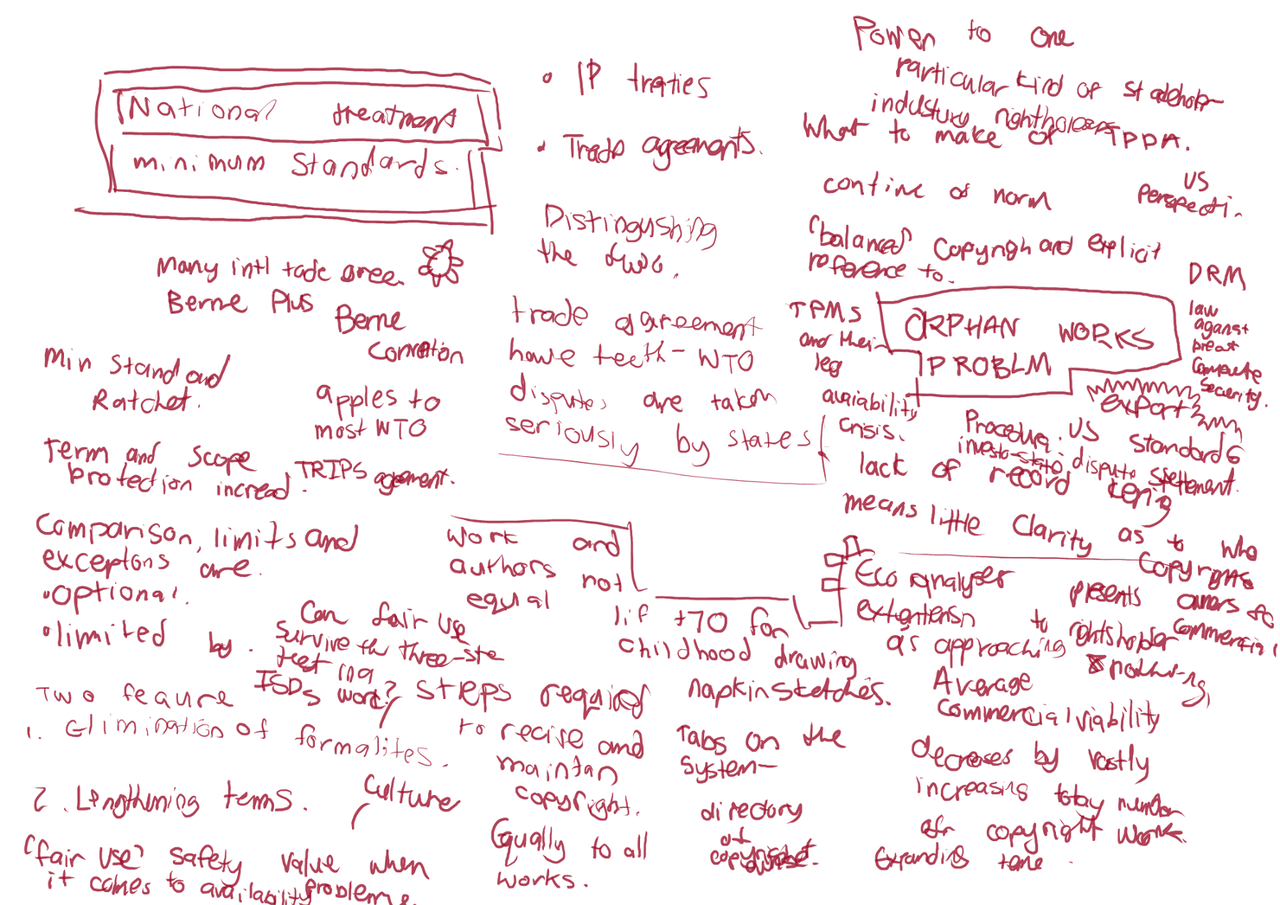 National treatment
minimum standards.
Many intl tade agree.
Berne Plus
Berne
Min Standard
Ratchet.
apples to
most WTO
TRIPS agement.
Term and scope
protection incread.
Comparison, limits and
exceptions are.
•optional.
•limited by.
Can fair use
survive the three-ste
test
ISDS work?
Two feaure
1. Elimination of formalites.
2. Lengthining terms.
Culture
"fair use" safety value when
it comes to availability problems.
• IP traties
• Trade agreements.
Distingushing
the two.
trade agreement
have teeth - WTO
disputes are taken
seriously by states
work and
authors not
equal
lif +70 for
childhood drawing
napkin sketches.
steps required
to recive and
maintan
copyright.
Equally to all
works.
Tabs on the
system-
directory
of
Power to one
particular kind of stakehol-
industury rightholders
What to make of TPPA.
US
perspecti.
contine of norm
"balanced" copyrigh and explicit
reference to.
ORPHAN WORKS
PROBLM
TPMS
and their
leg
avaiability
crisis.
DRM
law
against
Compute
security.
export
Procedure. US standards
investo-state dispute settlement.
lack of record
means little clarity as to who
copyrights
owners so
commercial
Eco analyser presents
extention to rightsholder
as approaching nothing,
Average
commercial viability
decreses by vastly
increasing totay number
of copyright works.
Expanding